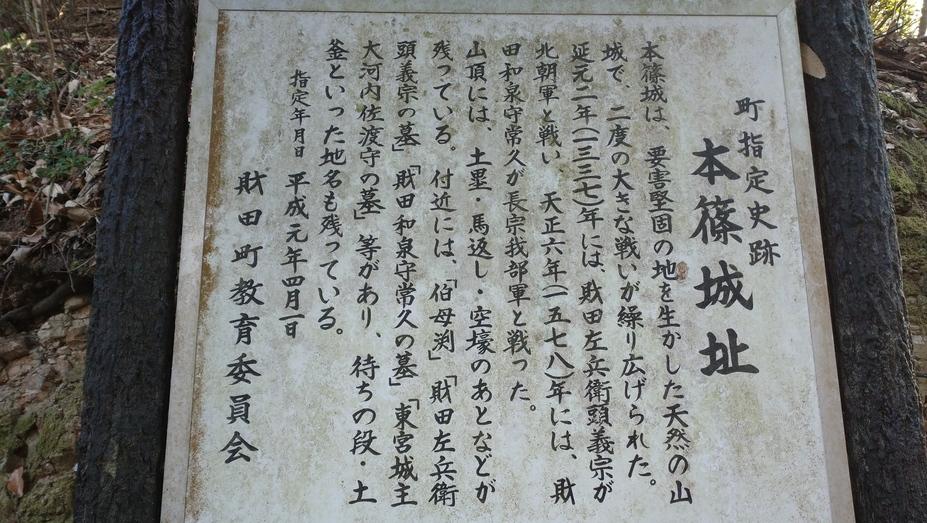 町指定史跡
本篠城址
本篠城は、要害堅固の地を生かした天然の山
城で、二度の大きな戦いが繰り広げられた。
延元二年(一三三七)年には、財田左兵衛頭義宗が
北朝軍と戦い、天正六年(一五七八)年には、財
田和泉守常久が長宗我部軍と戦った。
山頂には、土塁・馬返し・空壕のあとなどが
残っている。付近には、「伯母渕」「財田左兵衛
頭義宗の墓」「財田和泉守常久の墓」「東宮城主
大河内佐渡守の墓」等があり、待ちの段・土
釜といった地名も残っている。
指定年月日 平成元年四月一日
財田町教育委員会